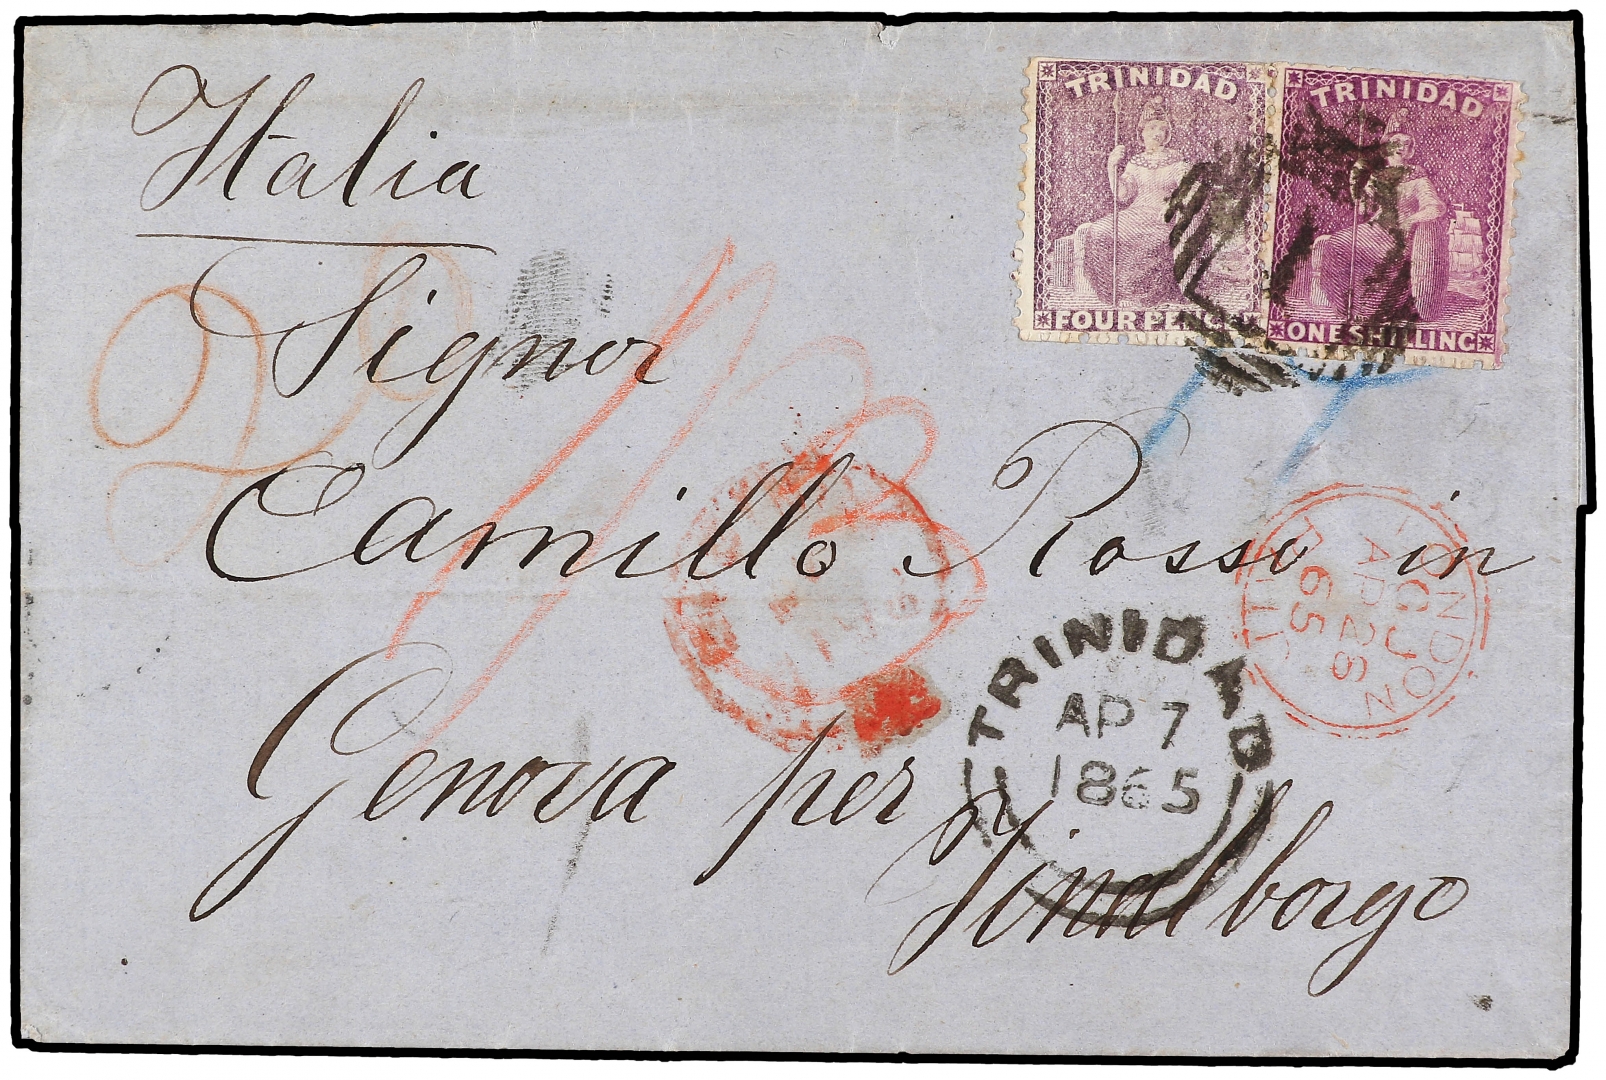 Italia
TRINIDAD
FOUR PENCE
TRINIDAD
ONE SHILLING
Signor
Camillo Rosso in
Genova per
Finalborgo
TRINIDAD
AP 7
1865
LONDON
CJ
AP 26
65
PAID